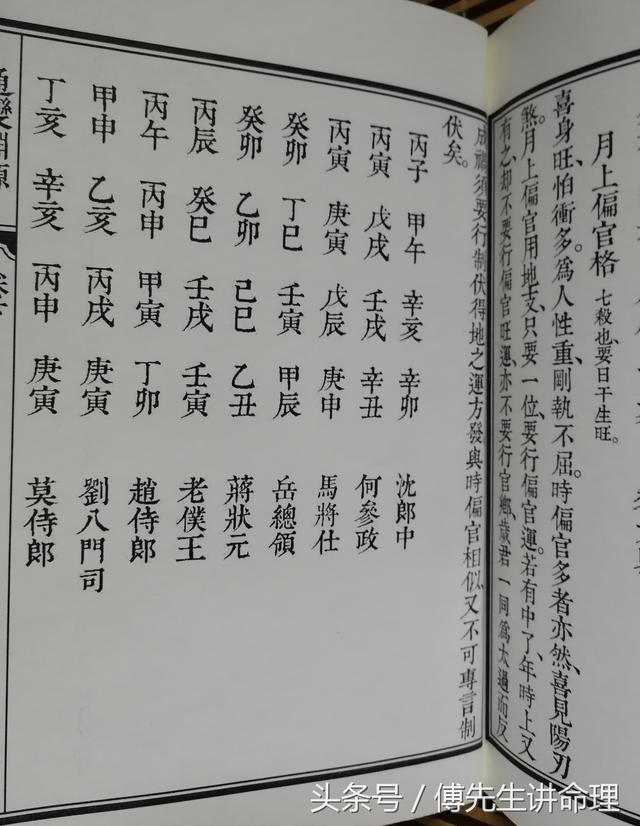 月上偏官格 七殺也要日干生旺。
喜身旺、怕衝多。爲人性重、剛執不屈。時偏官多者亦然、喜見陽刃
煞。月上偏官用地支、只要一位、要行偏官運。若有中了、年時上又
有之、却不要行偏官旺運、亦不要行官鄉、歲君一同爲太過、而反
成禍、須要行制伏得地之運方發、與時偏官相似、又不可專言制
伏矣。
丙子 甲午 辛亥 辛卯 沈郎中
丙寅 戊戌 壬戌 辛丑 何參政
丙寅 庚寅 戊辰 庚申 馬將仕
癸卯 丁巳 壬寅 甲辰 岳總領
癸卯 乙卯 己巳 乙丑 蔣狀元
丙辰 癸巳 壬戌 壬寅 老僕王
丙午 丙申 甲寅 丁卯 趙侍郎
甲申 乙亥 丙戌 庚寅 劉八門司
丁亥 辛亥 丙申 庚寅 莫侍郎
淵源
头条号 / 傅先生讲命理